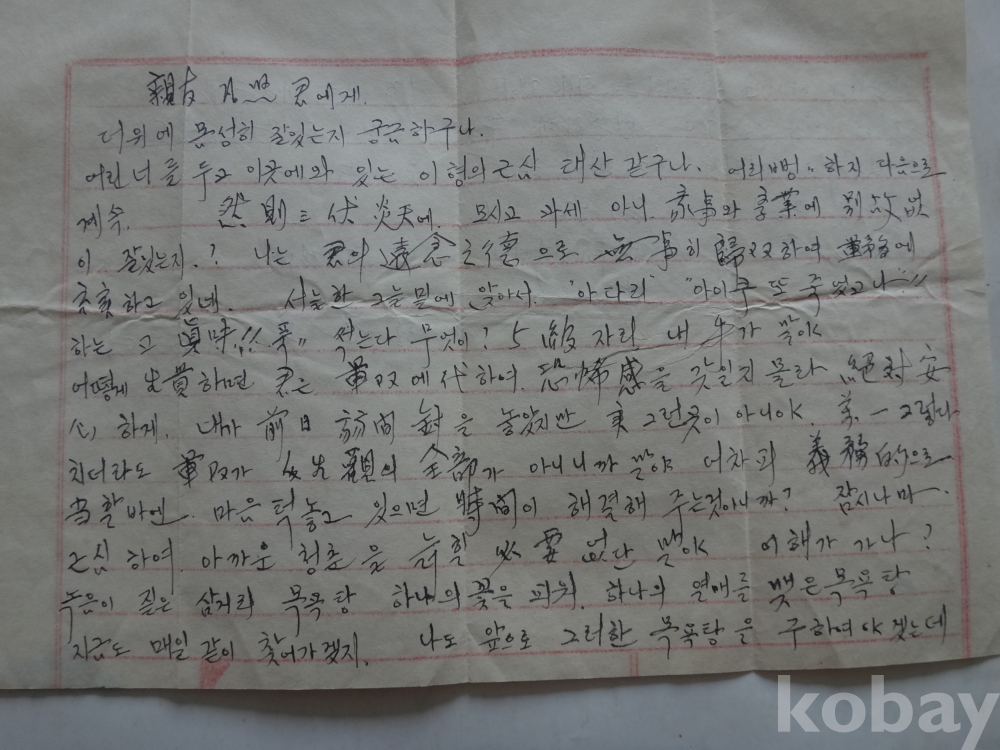 親友 君에게.
더위에 몸성히 잘있는지 궁금하구나.
어린 너를 두고 이곳에와 있는 이형의 근심 태산 같구나. 어리뻥.. 하지 다음으로
계속. 然則 三伏 炎天에. 모시고 과세 아니 家事와 業에 別故없
이 잘있는지.? 나는 君의 遠念之德으로 無事히 歸 하여 務에
하고 있네. 서늘한 그늘 밑에 앉아서. "아다리" "아이쿠 또 죽었고나"!!
하는 그 眞味!! 썩는다 무엇이? 5 자리 내 牛가 말이야
어떻게 하면 君은 에 代하여. 恐怖感을 갖일지 몰라 絶対安
心 하게. 내가 前日 訪問 을 놓았지만 그런곳이 아니야. 그렇다
치더라도 가 의 全部가 아니니까 말야 어차피 義務的으로
当할바엔. 마음 턱놓고 있으면 時間이 해결해 주는것이니까? 잠시나마.
근심 하여. 아까운 청춘을 必要 없단 말이야 이해가 가나?
녹음이 짙은 삼거리 목욕탕 하나의 꽃을 피워. 하나의 열매를 맺은 목욕탕
지금도 매일 같이 찾어가겠지. 나도 앞으로 그러한 목욕탕을 구하여야 겠는데
kobay